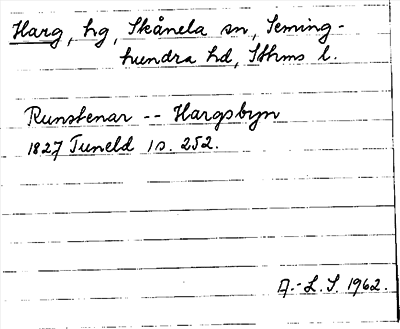 Harg, hg, Skånela sn, Seming-
hundra hd, Sthms l.
Runstenar -- Hargsbyn
1827 Tuneld 1 s. 252.
A.-L. S. 1962.